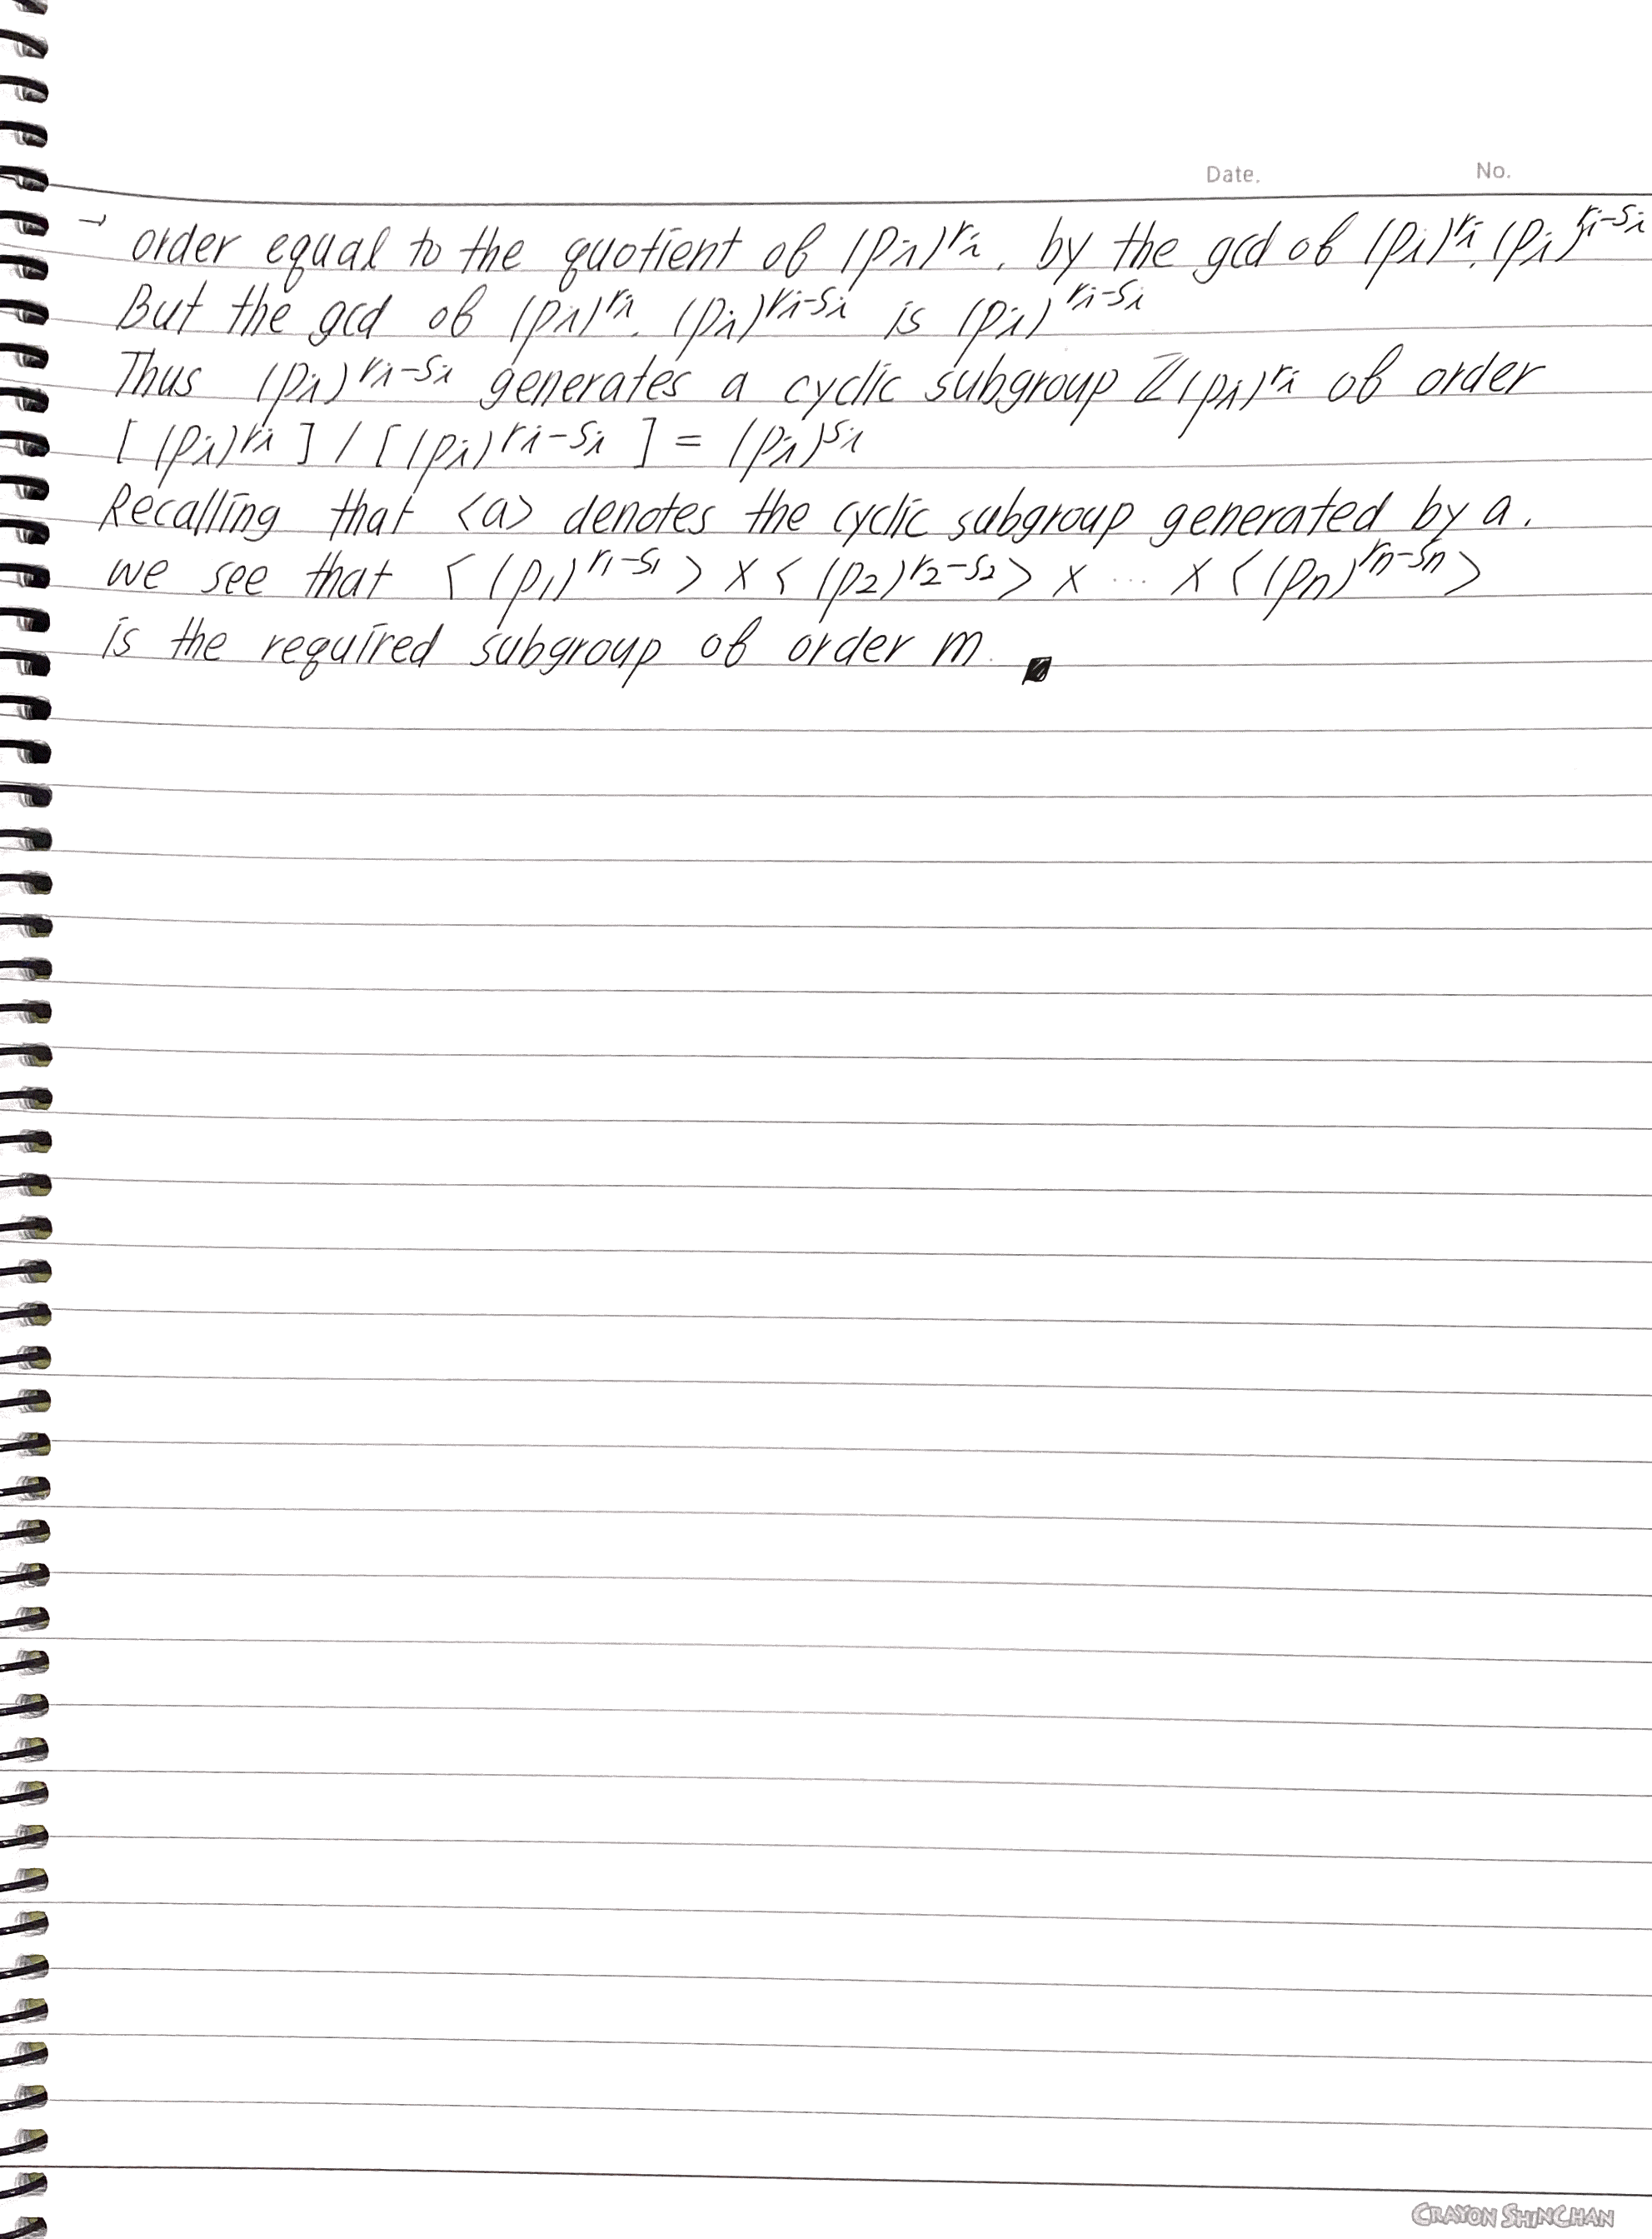 Date. No.
→ order equal to the quotient of (pᵢ)^rᵢ, by the gcd of (pᵢ)^rᵢ, (pᵢ)^rᵢ-sᵢ
But the gcd of (pᵢ)^rᵢ, (pᵢ)^rᵢ-sᵢ is (pᵢ)^rᵢ-sᵢ
Thus (pᵢ)^rᵢ-sᵢ generates a cyclic subgroup ℤ(pᵢ)^rᵢ of order
[(pᵢ)^rᵢ] / [(pᵢ)^rᵢ-sᵢ] = (pᵢ)^sᵢ
Recalling that <a> denotes the cyclic subgroup generated by a,
we see that <(p₁)^r₁-s₁> × <(p₂)^r₂-s₂> × ... × <(pₙ)^rₙ-sₙ>
is the required subgroup of order m. ■
CRAYON SHINCHAN